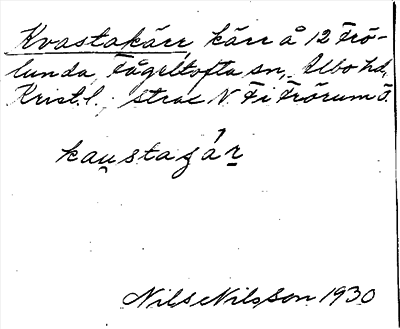 Kvastakärr, kärr å 12 Frö-
lunda, Fågeltofta sn, Albo hd,
Krist. l., strax N. Fi Frörum Ö.
kaustagár
Nils Nilsson 1930